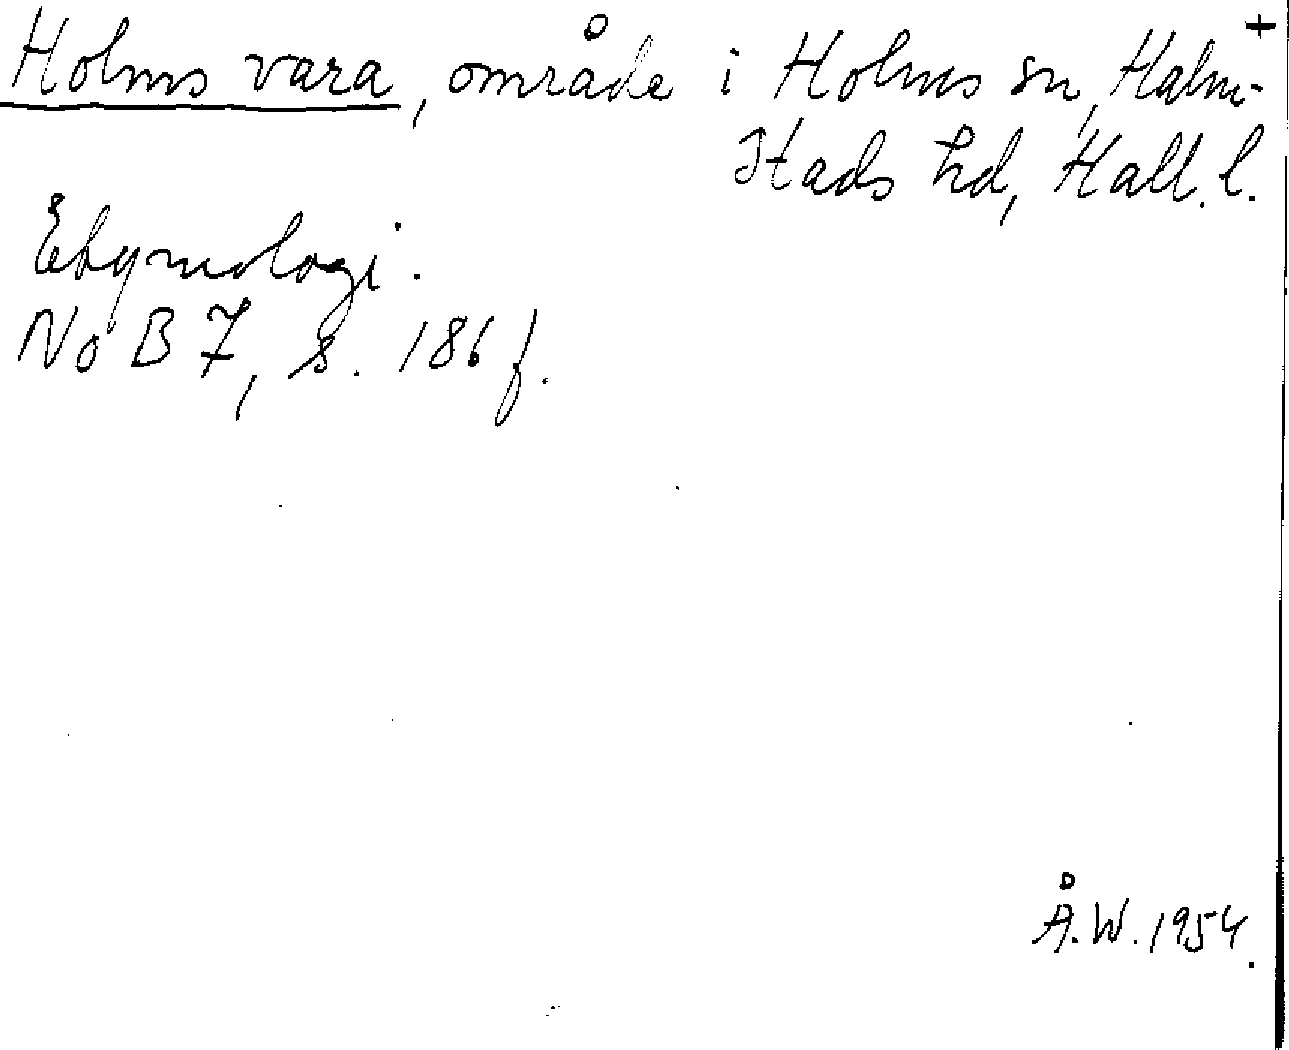 Holms vara, område i Holms sn, Halm- +
stads hd, Hall. l.
Etymologi.
NoB 7, s. 186 f.
Å.W. 1954.